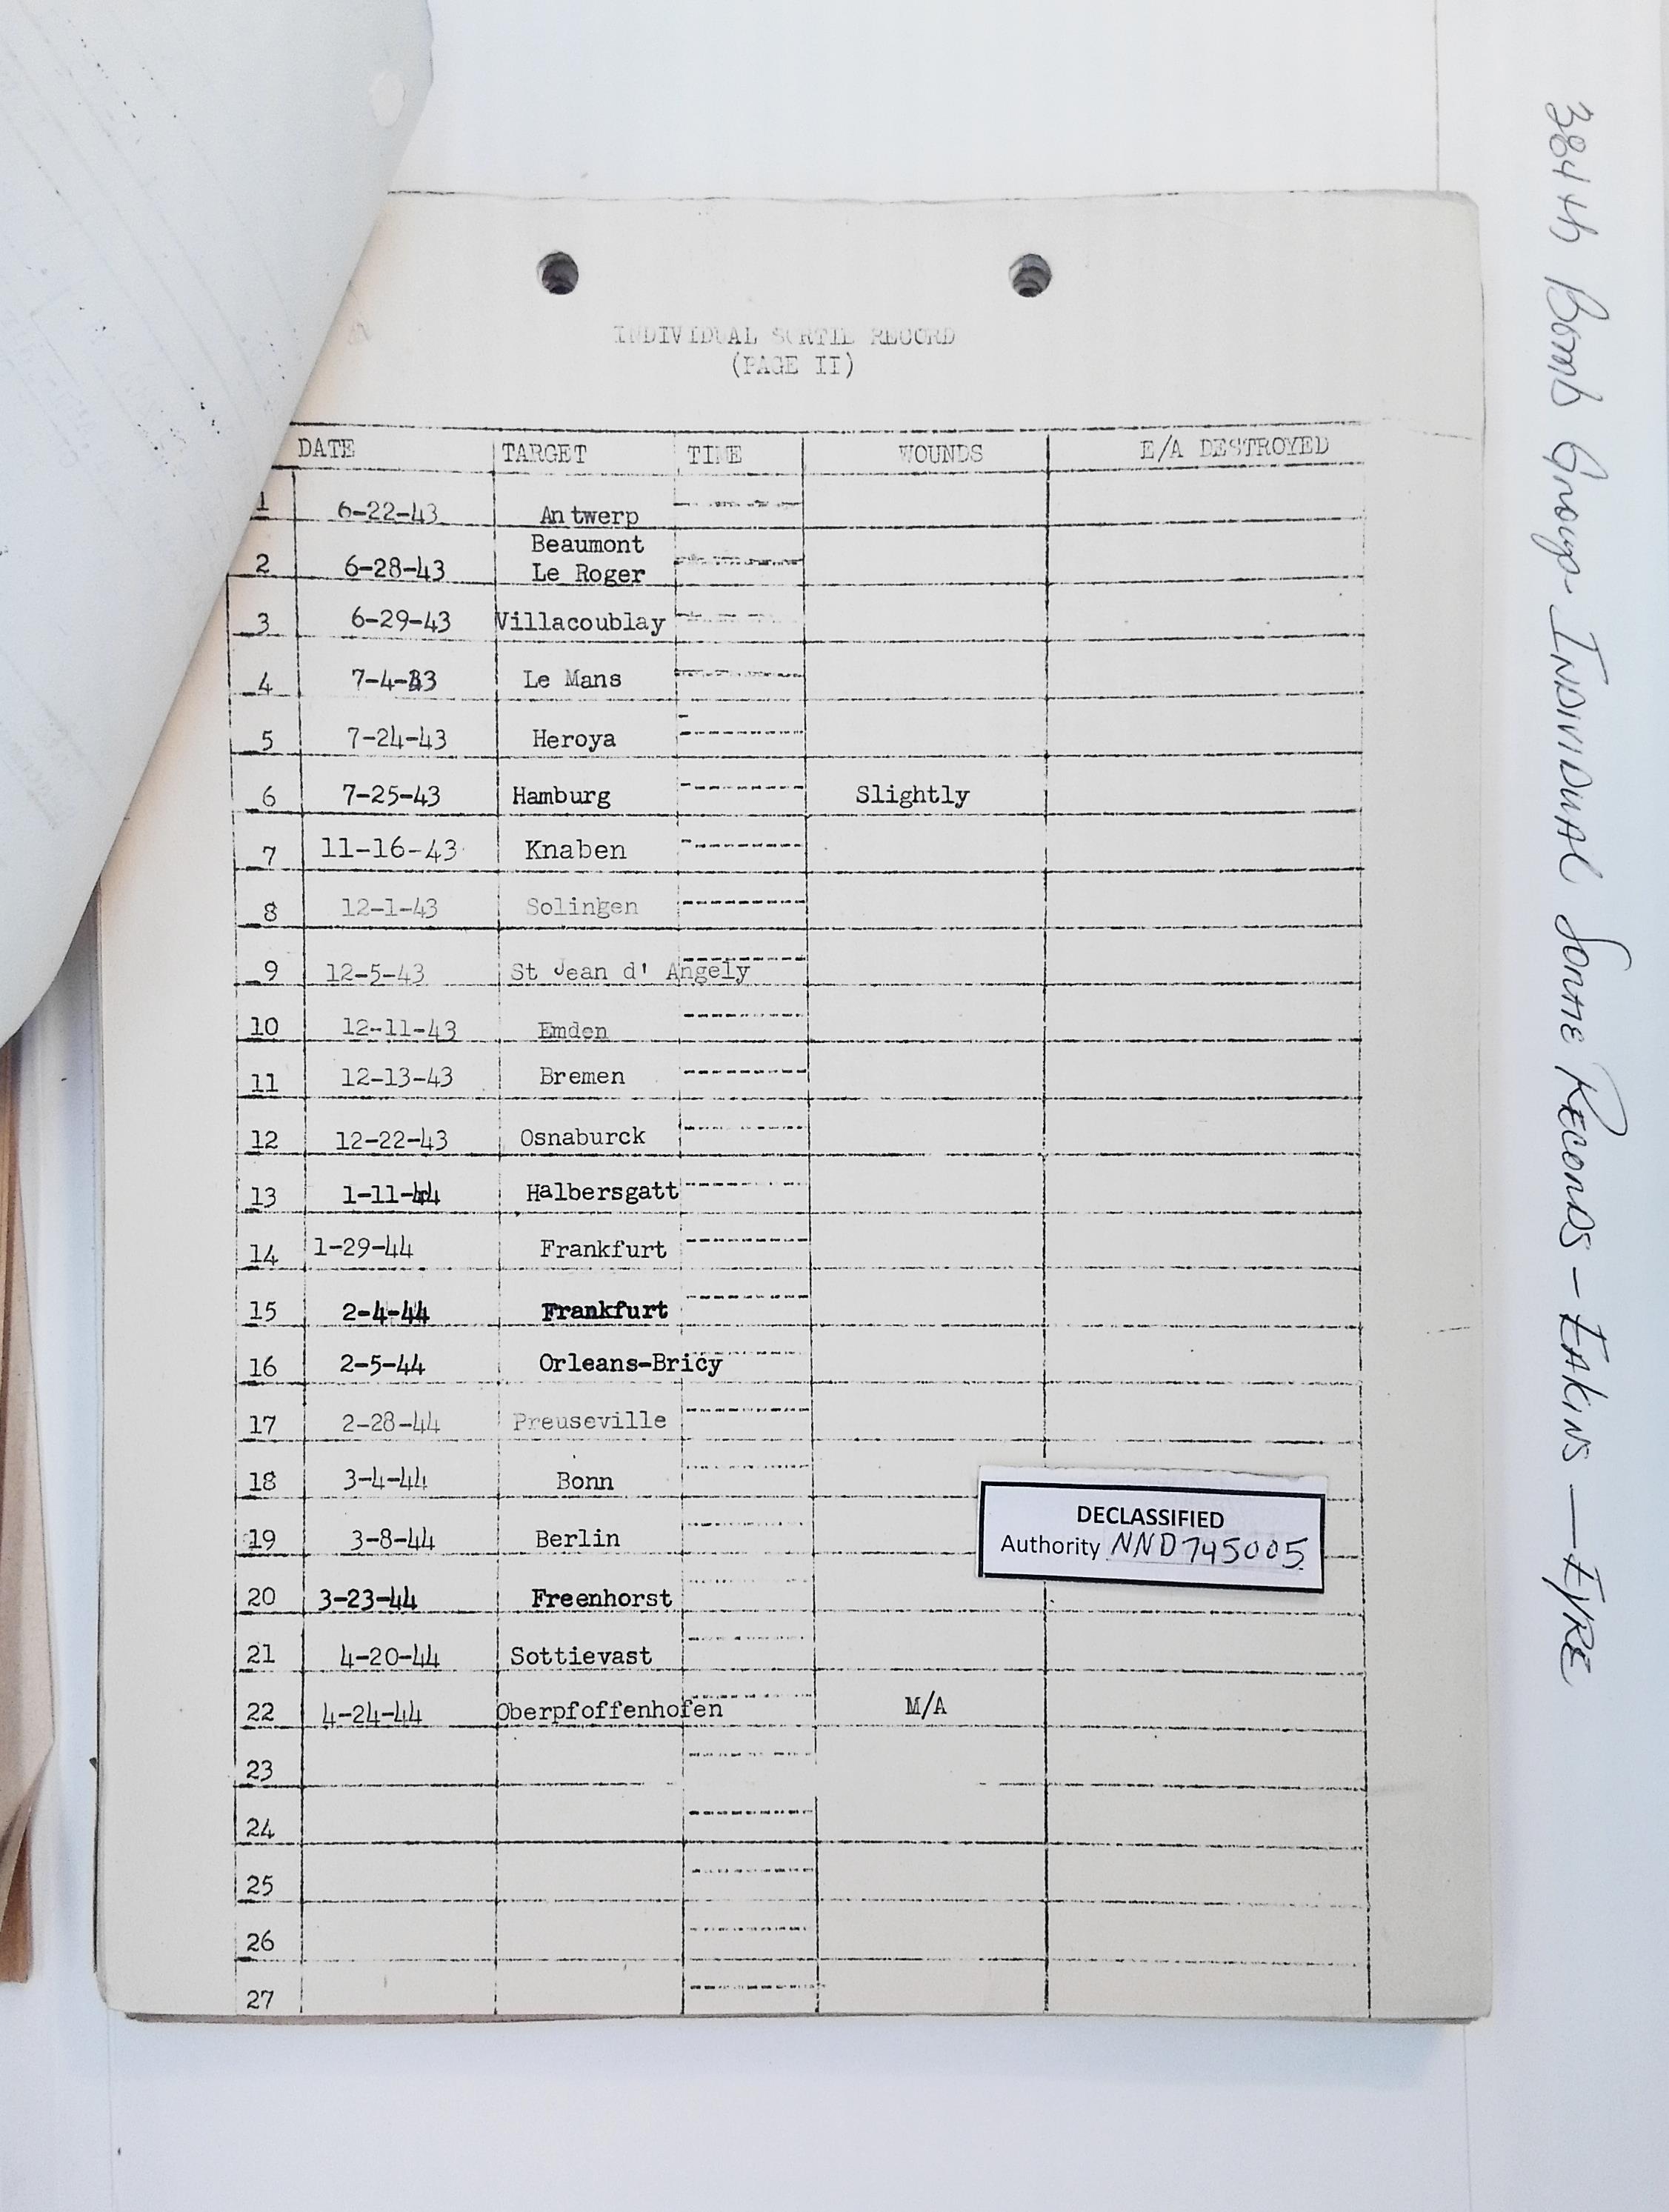 INDIVIDUAL SORTIE RECORD
(PAGE II)
DATE TARGET TIME WOUNDS E/A DESTROYED
1 6-22-43 Antwerp
2 6-28-43 Beaumont
Le Roger
3 6-29-43 Villacoublay
4 7-4-43 Le Mans
5 7-24-43 Heroya
6 7-25-43 Hamburg Slightly
7 11-16-43 Knaben
8 12-1-43 Solingen
9 12-5-43 St Jean d' Angely
10 12-11-43 Emden
11 12-13-43 Bremen
12 12-22-43 Osnaburck
13 1-11-44 Halbersgatt
14 1-29-44 Frankfurt
15 2-4-44 Frankfurt
16 2-5-44 Orleans-Bricy
17 2-28-44 Preuseville
18 3-4-44 Bonn
19 3-8-44 Berlin
20 3-23-44 Freenhorst
21 4-20-44 Sottievast
22 4-24-44 Oberpfoffenhofen M/A
23
24
25
26
27
DECLASSIFIED
Authority NND745005
384th Bomb Group - INDIVIDUAL Sortie Records - EAKINS - EYRE